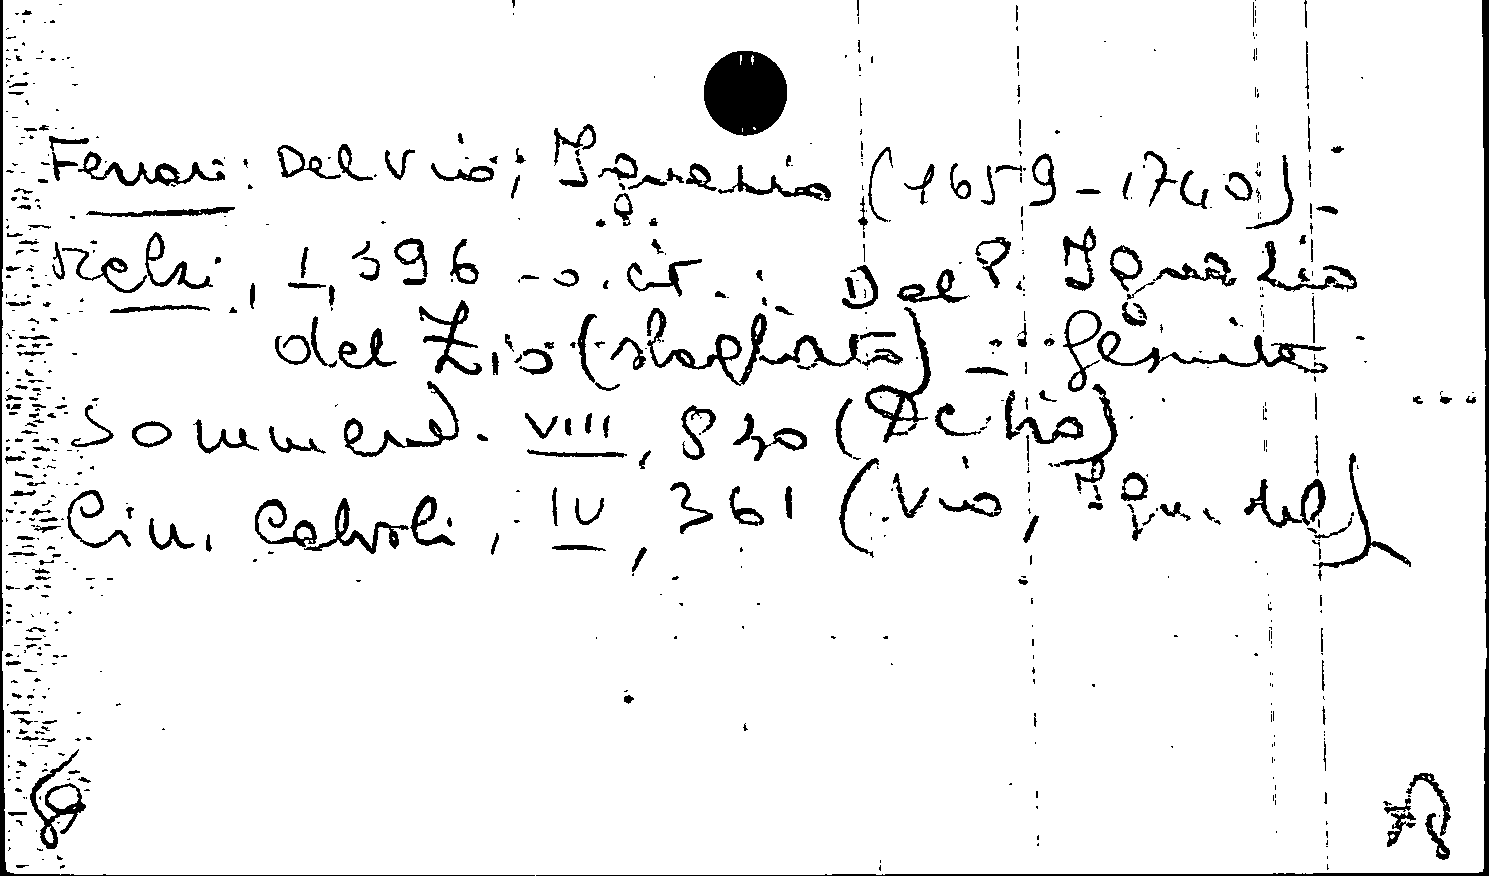 Ferrari: Del Vio; Ignazio (1659-1740).-
Melzi, I, 396 - o. cit. : Del P. Ignazio
del Zio (sbagliato) - Gesuita
Sommerv. VIII, 830 (De Vio)
Cin. Calvoli, IV, 361 (Vio, Ign. del)